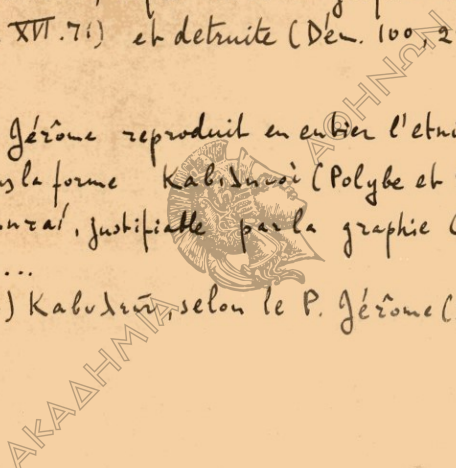 XVII.71) et detruite (Dém. 100, 2
Jérôme reproduit en entier l'etni
la forme (Polybe et
justifiable par la graphie
...
) selon le P. Jérôme (
ΑΚΑΔΗΜΙΑ ΑΘΗΝΩΝ